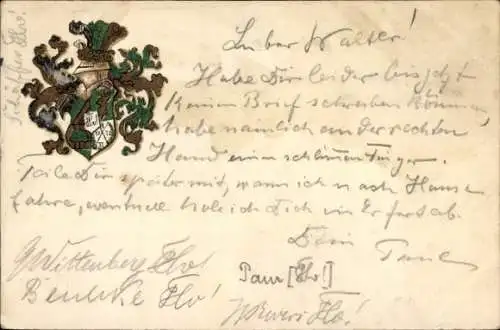 Lieber Walter!
Habe Dir leider bis jetzt
keinen Brief schreiben können,
habe nämlich an der rechten
Hand einen schlimmen Finger.
Teile Dir später mit, wann ich nach Hause
fahre, eventuell hole ich Dich in Erfurt ab.
Dein Paul
Schäffer
G Wittenberg
Paur